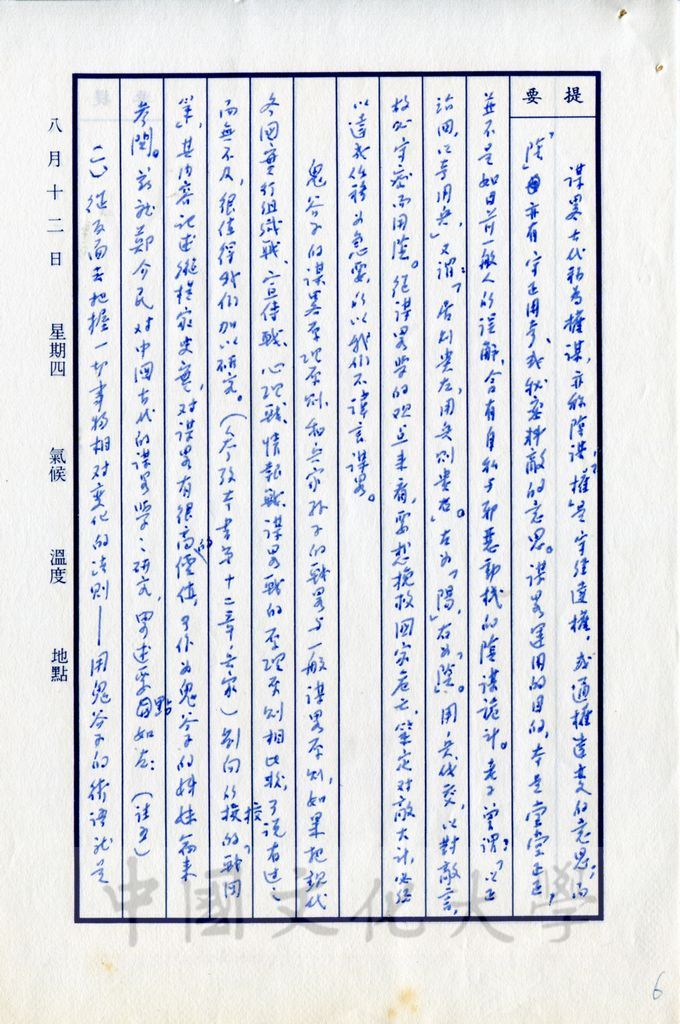 提要
謀畧古代称為權謀，亦称陰謀，「權」是守經達權，或通權達变的意思；而
「陰」亦有守正用奇，或秘密料敵的意思。謀畧運用的目的，本是堂堂正正，
並不是如目前一般人的誤解，含有自私与邪惡動机的陰謀詭計。老子曾謂：「以正
治國，以奇用兵，」又謂：「居則貴左，用兵則貴右。」左為「陽」，右為「陰」。用兵伐交，以對敵言，
故必守密而用陰。從謀畧学的观点来看，要想挽救國家危亡，策定对敵大计，必經
以達成任務為急要，所以我们不諱言謀畧。
鬼谷子的謀畧原理原則，和兵家孙子的戰畧与一般謀畧原則，如果把現代
各國实行組織戰、宣传戰、心理戰、情報戰、謀畧戰的原理原則相比較，可说有过之
而無不及，很值得我们加以研究。（參攷本書第十二章：兵家）劉向所校的「戰國
策」，其內容記述縱横家史实，对謀畧有很高的價值，可作為鬼谷子的姊妹篇来
參閱。茲就鄭介民对中國古代的謀畧学之研究，畧述要點如左：（註五）
(一)從反面去把握一切事物相对变化的法则——用鬼谷子的術語就是
八月十二日 星期四 氣候 溫度 地點
中國文化大學
6
6